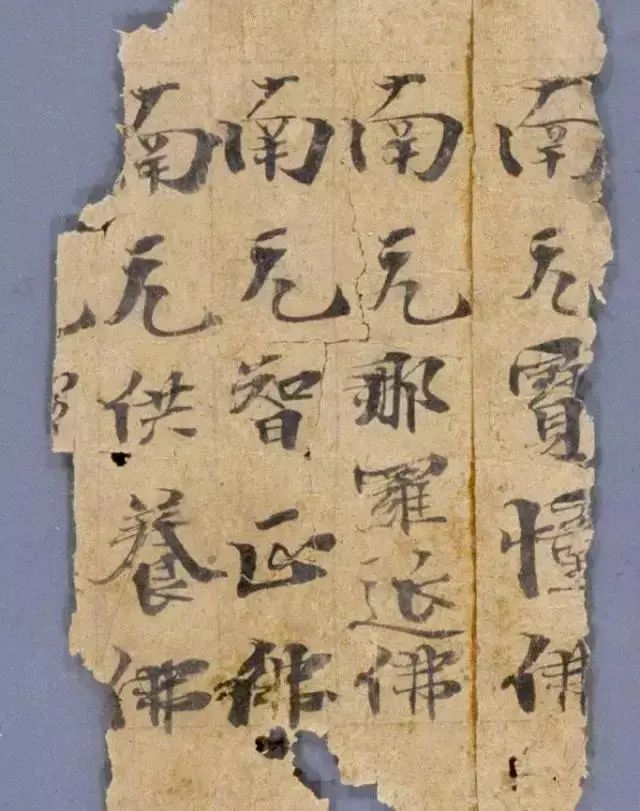 南无寶憧佛
南无那羅延佛
南无智正佛
南无供養佛